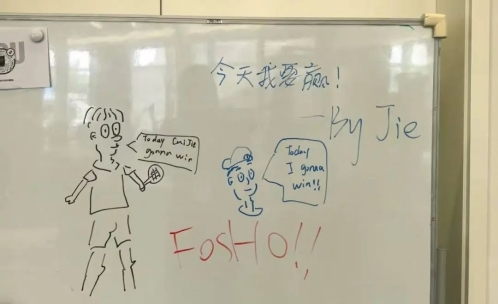 今天我要赢!
—By Jie
Today
gonna win
Today
I gonna
win!!
FosHO!!